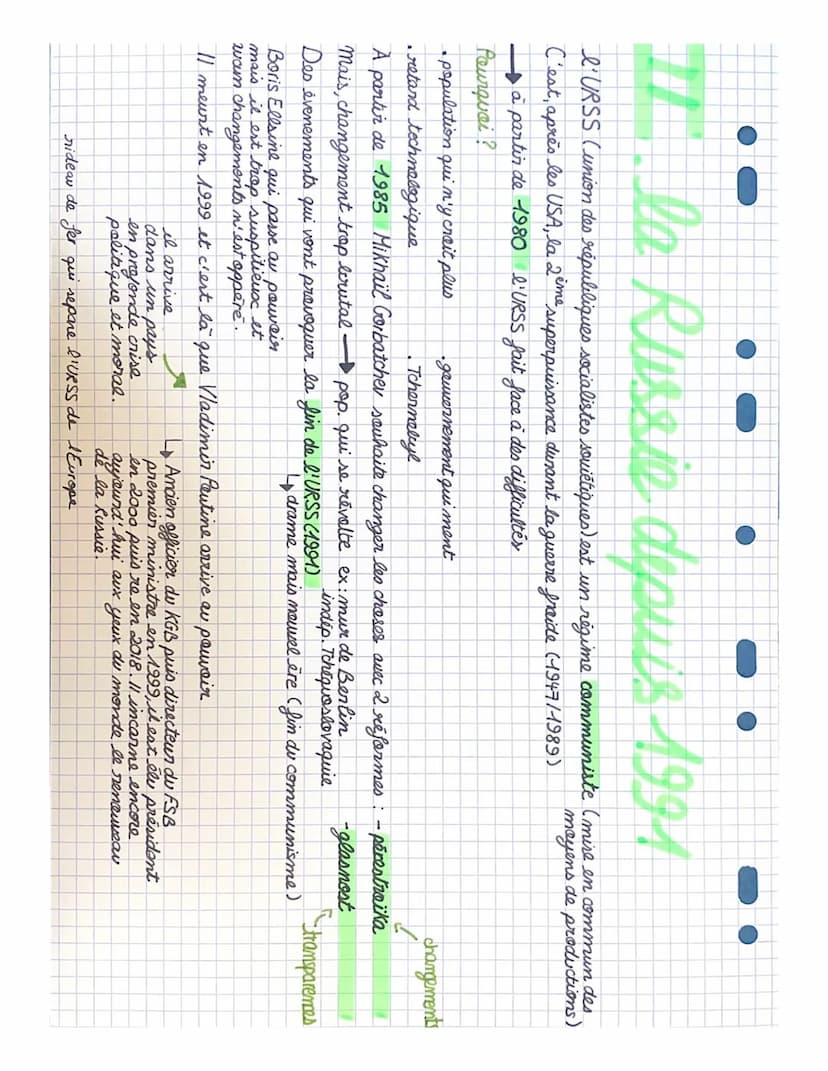 II. la Russie depuis 1991
l'URSS (union des républiques socialistes soviétiques) est un régime communiste (mise en commun des
moyens de productions)
C'est, après les USA, la 2ème superpuissance durant la guerre froide (1947/1989)
→ à partir de 1980 l'URSS fait face à des difficultés
Pourquoi ?
. population qui n'y croit plus . gouvernement qui ment
. retard technologique . Tchernobyl
changements
À partir de 1985 Mikhaïl Gorbatchev souhaite changer les choses avec 2 réformes : - pérestroïka
- glasnost
transparences
Mais, changement trop brutal → pop. qui se révolte ex : mur de Berlin
indép. Tchéquoslovaquie
Des évenements qui vont provoquer la fin de l'URSS (1991)
↳ drame mais nouvel ère (fin du communisme)
Boris Elsine qui passe au pouvoir
mais il est trop
aucun changements n'est oppéré.
Il meurt en 1999 et c'est là que Vladimir Poutine arrive au pouvoir
il arrive
dans un pays
en profonde crise
politique et moral.
↳ Ancien officier du KGB puis directeur du FSB
premier ministre en 1999, il est élu président
en 2000 puis re en 2018. Il incarne encore
aujourd'hui aux yeux du monde le renouveau
de la Russie.
rideau de fer qui sépare l'URSS de l'Europe